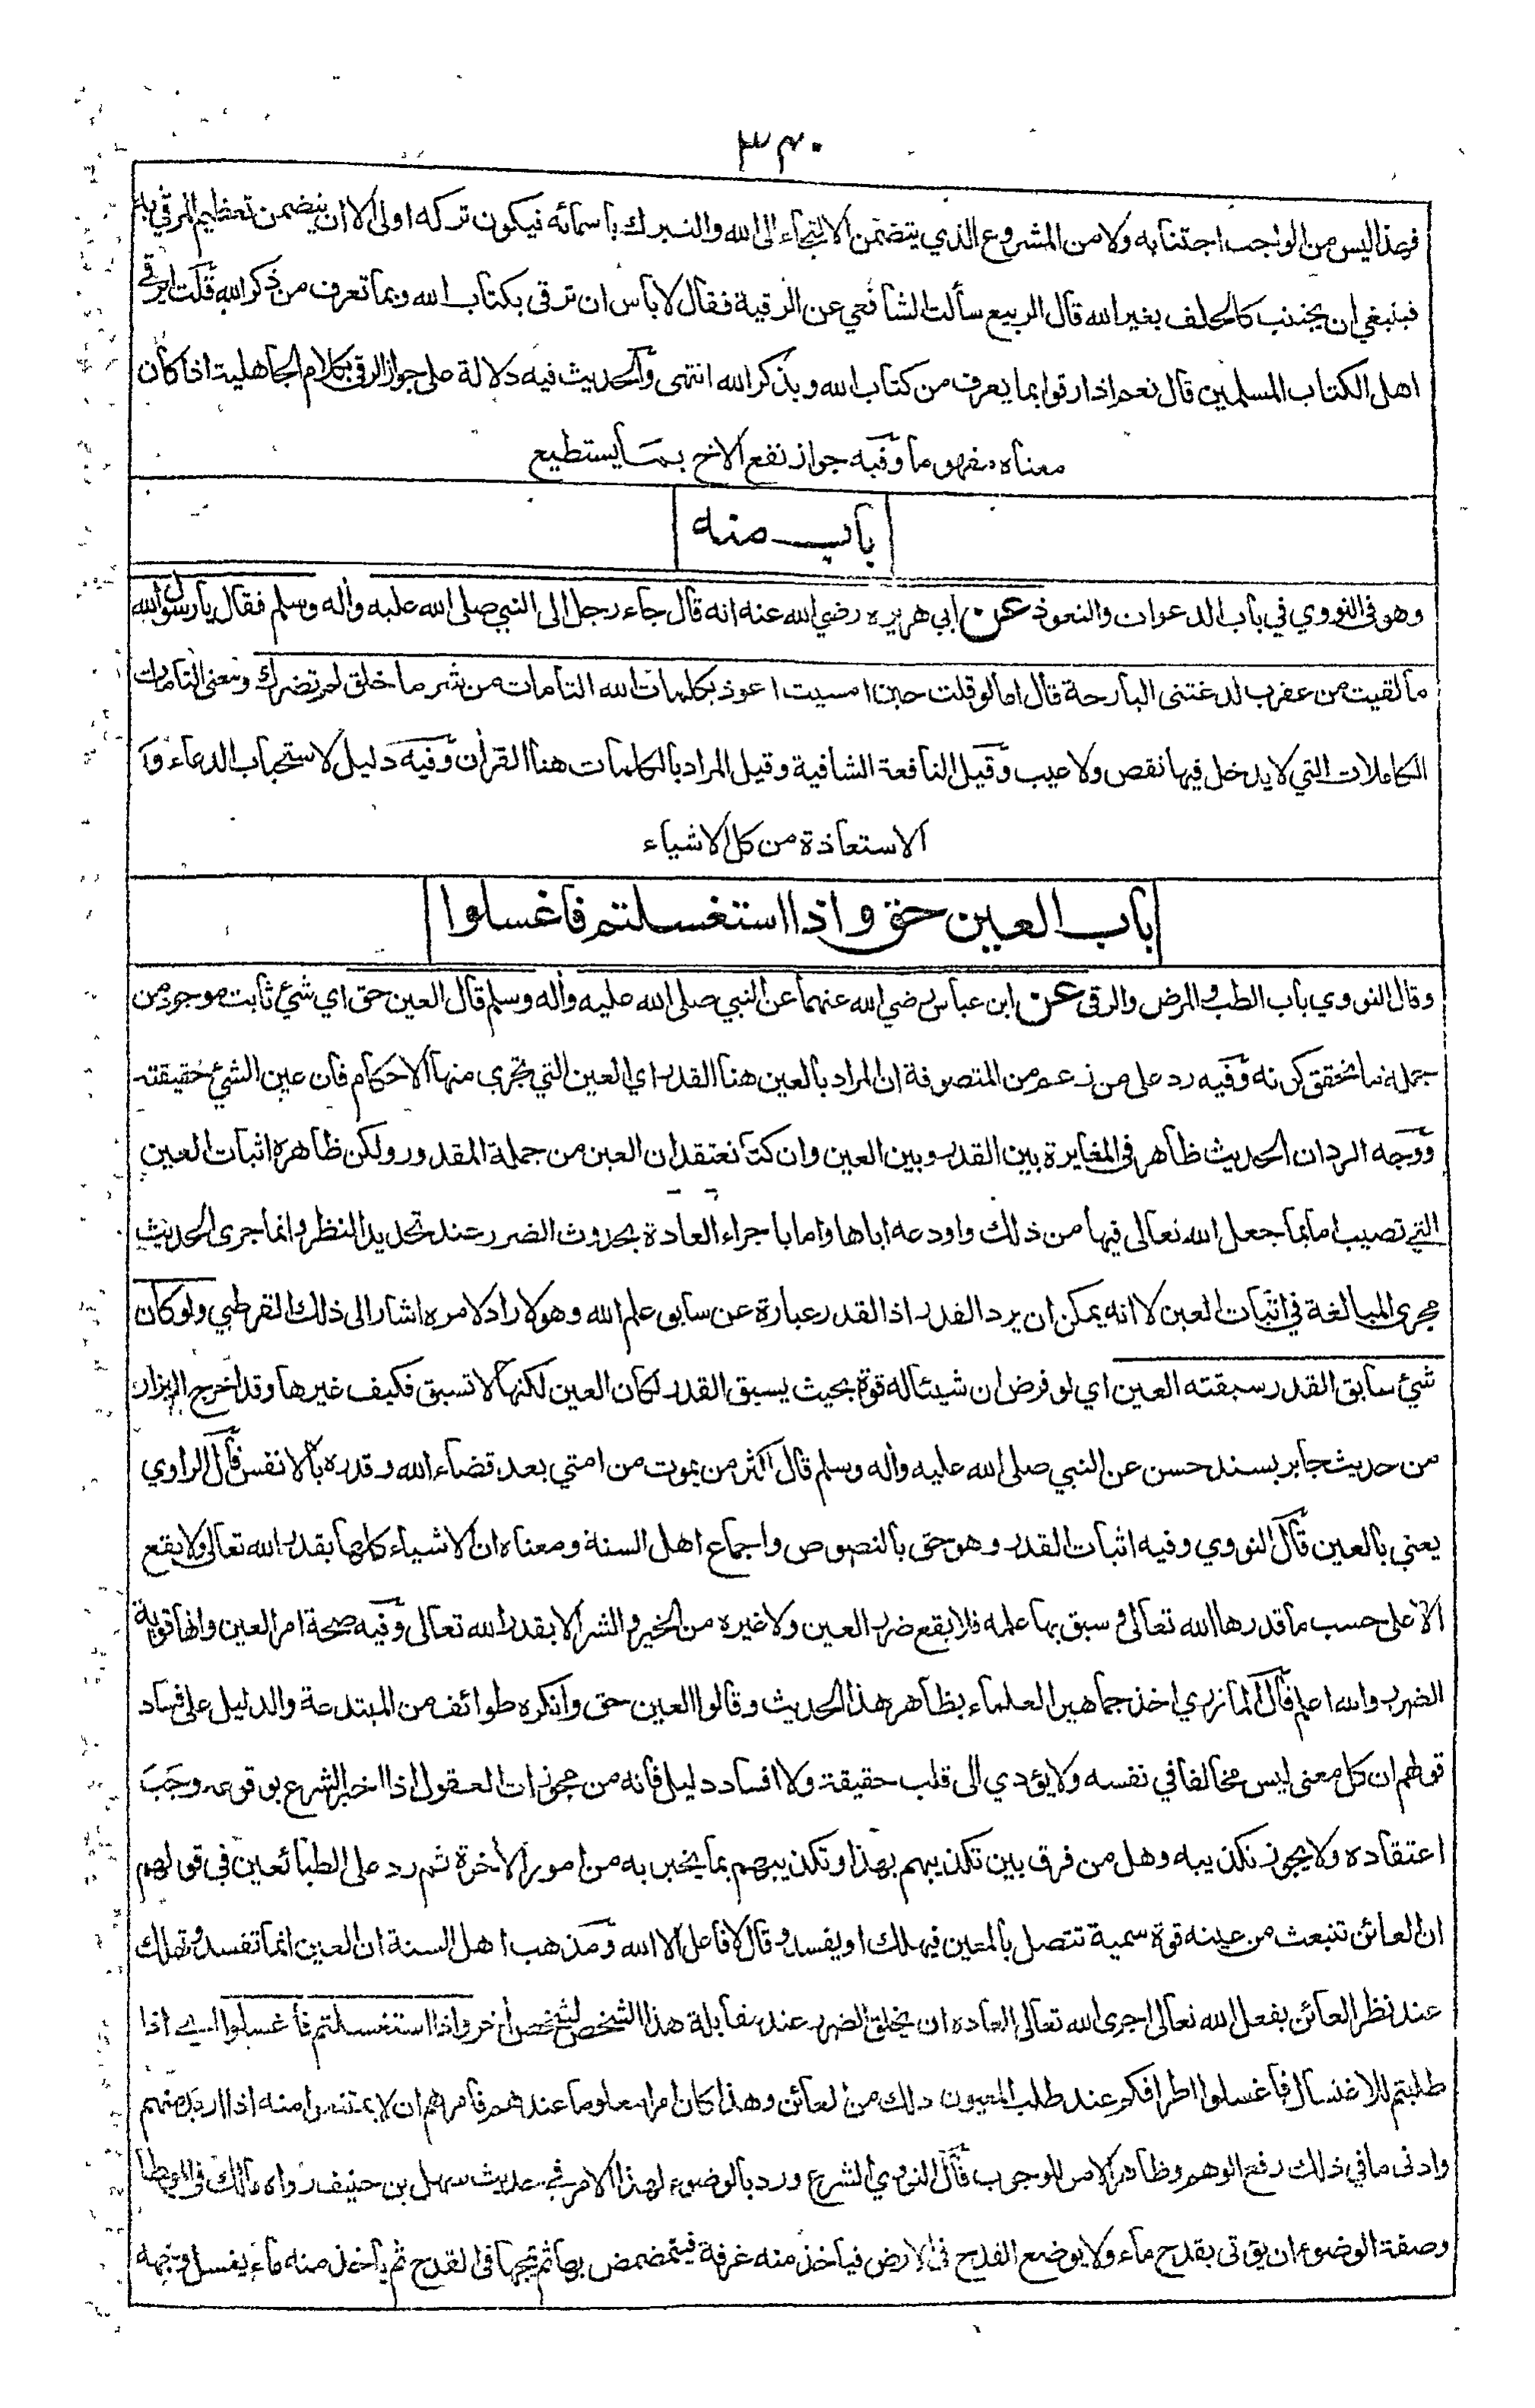 ٣٤٠
فهذا ليس من الواجب اجتنابه ولا من المشروع الذي يتضمن الالتجاء الى الله والتبرك بأسمائه فيكون تركه اولى الا ان يتضمن تعظيم المرقي به
فينبغي ان يجتنب كالحلف بغير الله قال الربيع سألت الشافعي عن الرقية فقال لا بأس ان ترقى بكتاب الله وبما تعرف من ذكر الله قلت ايرقي
اهل الكتاب المسلمين قال نعم اذا رقوا بما يعرف من كتاب الله وبذكر الله انتهى والحديث فيه دلالة على جواز الرقى بكلام الجاهلية اذا كان
معناه مفهوما وفيه جواز نفع الاخ بما يستطيع
باب منه
وهو في النووي في باب الدعوات والتعوذ عن ابي هريره رضي الله عنه انه قال جاء رجل الى النبي صلى الله عليه وأله وسلم فقال يا رسول الله
ما لقيت من عقرب لدغتنى البارحة قال اما لو قلت حين امسيت اعوذ بكلمات الله التامات من شر ما خلق لم تضرك ومعنى التامات
الكاملات التي لا يدخل فيها نقص ولا عيب وقيل النافعة الشافية وقيل المراد بالكلمات هنا القرأن وفيه دليل لاستحباب الدعاء و
الاستعاذة من كل الاشياء
باب العين حق واذا استغسلتم فاغسلوا
وقال النووي باب الطب والمرض والرقى عن ابن عباس رضي الله عنهما عن النبي صلى الله عليه وأله وسلم قال العين حق اي شئ ثابت موجود من
جملة ما تحقق كونه وفيه رد على من زعم من المتصوفة ان المراد بالعين هنا القدر اي العين التي تجري منها الاحكام فان عين الشئ حقيقته
ووجه الرد ان الحديث ظاهر في المغايرة بين القدر وبين العين وان كنا نعتقد ان العين من جملة المقدور ولكن ظاهره اثبات العين
التي تصيب اما بما جعل الله تعالى فيها من ذلك واودعه اياها واما باجراء العادة بحدوث الضرر عند تحديد النظر وانما جرى الحديث
مجرى المبالغة في اثبات العين لا انه يمكن ان يرد القدر اذ القدر عبارة عن سابق علم الله وهو لا راد لامره اشار الى ذلك القرطبي ولو كان
شئ سابق القدر سبقته العين اي لو فرض ان شيئا له قوة بحيث يسبق القدر لكان العين لكنها لا تسبق فكيف غيرها وقد اخرج البزار
من حديث جابر بسند حسن عن النبي صلى الله عليه وأله وسلم قال اكثر من يموت من امتي بعد قضاء الله وقدره بالانفس قال الراوي
يعني بالعين قال النووي وفيه اثبات القدر وهو حق بالنصوص واجماع اهل السنة ومعناه ان الاشياء كلها بقدر الله تعالى ولا يقع
الا على حسب ما قدرها الله تعالى وسبق بها علمه فلا يقع ضرر العين ولا غيره من الخير والشر الا بقدر الله تعالى وفيه صحة امر العين وانها قوية
الضرر والله اعلم قال المازري اخذ جماهير العلماء بظاهر هذا الحديث وقالوا العين حق وانكره طوائف من المبتدعة والدليل على فساد
قولهم ان كل معنى ليس مخالفا في نفسه ولا يؤدي الى قلب حقيقة ولا افساد دليل فانه من مجوزات العقول اذا اخبر الشرع بوقوعه وجب
اعتقاده ولا يجوز تكذيبه وهل من فرق بين تكذيبهم بهذا وتكذيبهم بما يخبر به من امور الأخرة ثم رد على الطبائعين في قولهم
ان العائن تنبعث من عينه قوة سمية تتصل بالمعين فيهلك او يفسد وقال لا فاعل الا الله ومذهب اهل السنة ان العين انما تفسد وتهلك
عند نظر العائن بفعل الله تعالى اجرى الله تعالى العاده ان يخلق الضرر عند مقابلة هذا الشخص لشخص أخر واذا استغسلتم فاغسلوا اي اذا
طلبتم للاغتسال فاغسلوا اطرافكم عند طلب المعيون ذلك من العائن وهذا كان امرا معلوما عندهم فامرهم ان لا يمتنعوا منه اذا اريد منهم
وادنى ما في ذلك رفع الوهم وظاهر الامر للوجوب قال النووي الشرع ورد بالوضوء لهذا الامر في حديث سهل بن حنيف رواه مالك في الموطا
وصفة الوضوء ان يؤتى بقدح ماء ولا يوضع القدح في الارض فيأخذ منه غرفة فيتمضمض بها ثم يمجها في القدح ثم يأخذ منه ماء يغسل وجهه